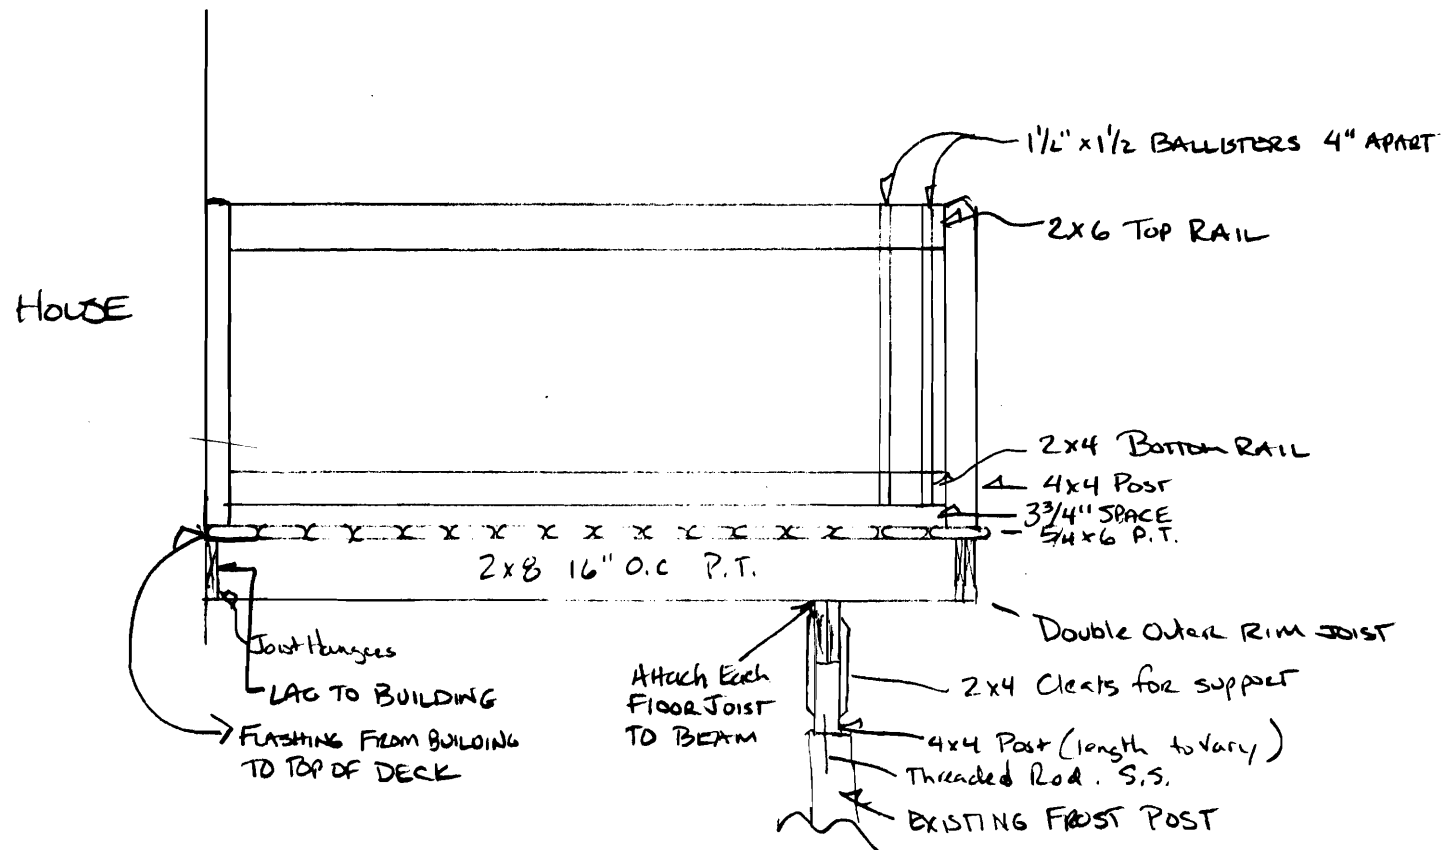 1 1/2" x 1 1/2 BALLISTERS 4" APART
2x6 TOP RAIL
HOUSE
2x4 BOTTOM RAIL
4x4 POST
3 3/4" SPACE
5/4 x 6 P.T.
2x8 16" O.C P.T.
Double Outer RIM JOIST
Joist Hangers
LAG TO BUILDING
FLASHING FROM BUILDING
TO TOP OF DECK
Attach Each
FLOOR JOIST
TO BEAM
2x4 Cleats for support
4x4 Post (length to vary)
Threaded Rod. S.S.
EXISTING FROST POST